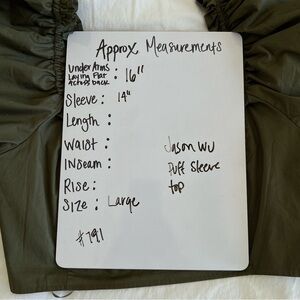 Approx Measurements
Under Arms
Laying Flat : 16"
Across back
Sleeve : 14"
Length :
Waist :
Inseam :
Rise :
Size : Large
Jason Wu
Puff Sleeve
top
#791